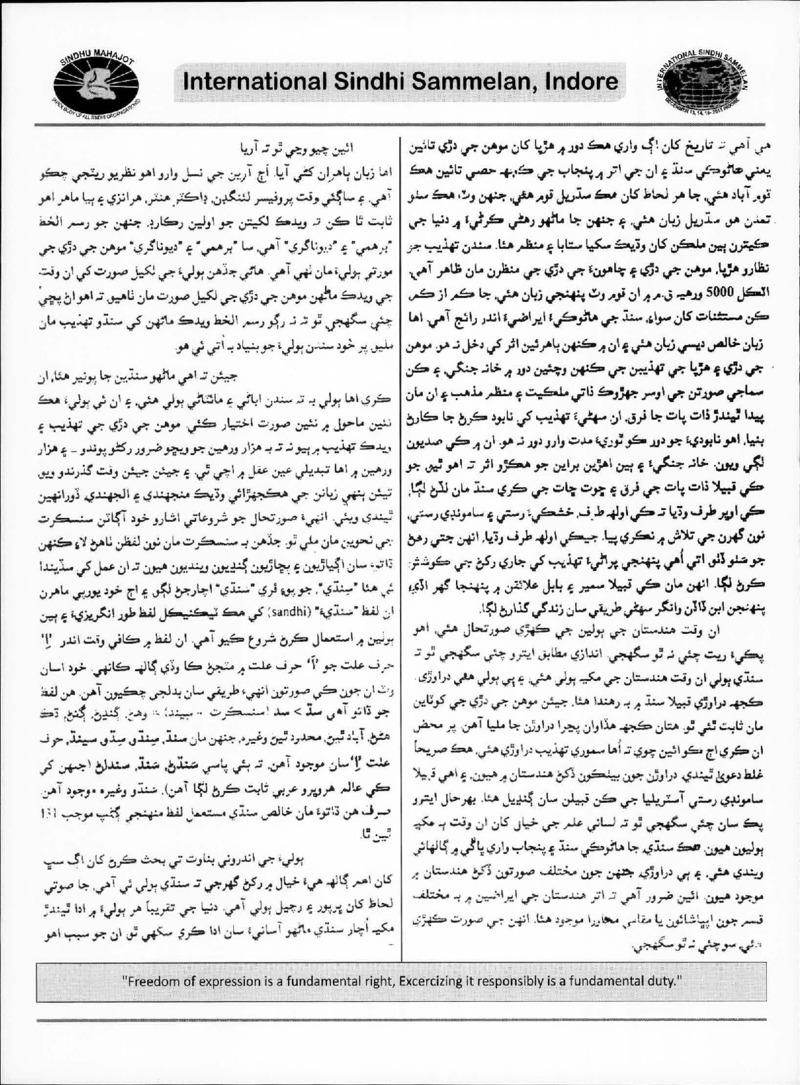 SINDHU MAHAJOT
International Sindhi Sammelan, Indore
INTERNATIONAL SINDHI SAMMELAN
هي آهي تہ تاريخ کان اڳ واري هڪ دور ۾ هڙپا کان موهن جي دڙي تائين
يعني هاڻوڪي سنڌ ۽ ان جي اتر ۾ پنجاب جي ڪجهہ حصي تائين هڪ
قوم آباد هئي، جا هر لحاظ کان هڪ سڌريل قوم هئي، جنهن وٽ هڪ
تمدن هو، سڌريل زبان هئي، ۽ جنهن جا ماڻهو رهڻي ڪرڻيءَ ۾ دنيا جي
ڪيترن ٻين ملڪن کان وڌيڪ سکيا ستابا ۽ منظم هئا. سندن تهذيب جو
نظارو هڙپا، موهن جي دڙي ۽ چاهونءَ جي دڙي جي منظرن مان ظاهر آهي.
اٽڪل 5000 ورهيہ ق.م ۾ ان قوم وٽ پنهنجي زبان هئي، جا ڪم از ڪم،
ڪن مستثنات کان سواءِ، سنڌ جي هاڻوڪيءَ ايراضيءَ اندر رائج آهي. اها
زبان خالص ديسي زبان هئي ۽ ان ۾ ڪنهن ٻاهرئين اثر کي دخل نہ هو. موهن
جي دڙي ۽ هڙپا جي تهذيبن جي ڪنهن وچئين دور ۾ خانہ جنگي، ۽ ڪن
سماجي صورتن جي اوسر جهڙوڪ ذاتي ملڪيت ۽ منظم مذهب ۽ ان مان
پيدا ٿيندڙ ذات پات جا فرق، ان سهڻيءَ تهذيب کي نابود ڪرڻ جا ڪارڻ
بنيا، اهو نابوديءَ جو دور ڪو ٿوريءَ مدت وارو دور نہ هو. ان ۾ ڪي صديون
لڳي ويون. خانہ جنگيءَ ۽ ٻين اهڙين براين جو هڪڙو اثر تہ اهو ٿيو جو
ڪي قبيلا ذات پات جي فرق ۽ ڇوت ڇات جي ڪري سنڌ مان لڏڻ لڳا،
ڪي اوير طرف وڌيا تہ ڪي اولهہ طرف، خشڪيءَ رستي ۽ سامونڊي رستي،
نون گهرن جي تلاش ۾ نڪري پيا. جيڪي اولهہ طرف وڌيا، انهن جتي رهڻ
جو سَنو ڏٺو، اتي اُهي پنهنجي پراڻيءَ تهذيب کي جاري رکڻ جي ڪوشش
ڪرڻ لڳا. انهن مان ڪي قبيلا سمير ۽ بابل علائقن ۾ پنهنجا گهر اڏي،
پنهنجن ابن ڏاڏن وانگر سهڻي طريقي سان زندگي گذارڻ لڳا.
ان وقت هندستان جي ٻولين جي ڪهڙي صورتحال هئي، اهو
پڪيءَ ريت چئي نہ ٿو سگهجي. اندازي مطابق ايترو چئي سگهجي ٿو تہ
سنڌي ٻولي ان وقت هندستان جي مکيہ ٻولي هئي، ۽ ٻي ٻولي هئي دراوڙي.
ڪجهہ دراوڙي قبيلا سنڌ ۾ بہ رهندا هئا، جيئن موهن جي دڙي جي کوٽاين
مان ثابت ٿئي ٿو. هتان ڪجهہ هڏاوان پڃرا دراوڙن جا مليا آهن. پر محض
ان ڪري اڄ ڪو ائين چوي تہ اُها سموري تهذيب دراوڙي هئي، هڪ صريحاً
غلط دعويٰ ٿيندي. دراوڙن جون بينڪون ڏکڻ هندستان ۾ هيون، ۽ اهي قبيلا
سامونڊي رستي آسٽريليا جي ڪن قبيلن سان ڳنڍيل هئا. بهرحال ايترو
پڪ سان چئي سگهجي ٿو تہ لساني علم جي خيال کان ان وقت ٻہ مکيہ
ٻوليون هيون. هڪ سنڌي، جا هاڻوڪي سنڌ ۽ پنجاب واري ڀاڱي ۾ ڳالهائي
ويندي هئي، ۽ ٻي دراوڙي، جنهن جون مختلف صورتون ڏکڻ هندستان ۾
موجود هيون. ائين ضرور آهي تہ اتر هندستان جي ايراضين ۾ بہ مختلف
قسم جون اپڀاشائون يا مقامي محاورا موجود هئا. انهن جي صورت ڪهڙي
هئي، سو چئي نہ ٿو سگهجي.
ائين چيو وڃي ٿو تہ آريا
اها زبان ٻاهران کڻي آيا. اڄ آرين جي نسل وارو اهو نظريو ريٽجي چڪو
آهي. ۽ ساڳئي وقت پروفيسر لئنگڊن، ڊاڪٽر هنٽر، هرانزي ۽ ٻيا ماهر اهو
ثابت ٿا ڪن تہ ويدڪ لکيتن جو اولين رڪارڊ، جنهن جو رسم الخط
"برهمي" ۽ "ديوناگري" آهي، سا "برهمي" ۽ "ديوناگري" موهن جي دڙي جي
مورتي ٻوليءَ مان ٺهي آهي. هاڻي جڏهن ٻوليءَ جي لکيل صورت کي ان وقت
جي ويدڪ ماڻهن موهن جي دڙي جي لکيل صورت مان ٺاهيو، تہ اهو اڻ پڇي
چئي سگهجي ٿو تہ نہ رڳو رسم الخط ويدڪ ماڻهن کي سنڌو تهذيب مان
مليو، پر خود سندن ٻوليءَ جو بنياد بہ اُتي ئي هو.
جيئن تہ اهي ماڻهو سنڌين جا پونير هئا، ان
ڪري اها ٻولي بہ تہ سندن اباڻي ۽ مائٽاڻي ٻولي هئي، ۽ ان ئي ٻوليءَ هڪ
نئين ماحول ۾ نئين صورت اختيار ڪئي. موهن جي دڙي جي تهذيب ۽
ويدڪ تهذيب ۾ ٻيو نہ تہ بہ هزار ورهين جو ويڇو ضرور رکڻو پوندو - ۽ هزار
ورهين ۾ اها تبديلي عين عقل ۾ اچي ٿي. ۽ جيئن جيئن وقت گذرندو ويو،
تيئن ٻنهي زبانن جي هڪجهڙائي وڌيڪ منجهندي ۽ الجهندي، ڏورانهين
ٿيندي ويئي. انهيءَ صورتحال جو شروعاتي اشارو خود آڳاٽن سنسڪرت
جي نحوين مان ملي ٿو. جڏهن بہ سنسڪرت مان نون لفظن ٺاهڻ لاءِ ڪنهن
ڌاتوءَ سان اڳياڙيون ۽ پڇاڙيون ڳنڍيون وينديون هيون تہ ان عمل کي سڏيندا
ئي هئا "سِنڌي"، جو پوءِ ڦري "سنڌي" اچارجڻ لڳو. ۽ اڄ خود يورپي ماهرن
ان لفظ "سنڌيءَ" (sandhi) کي هڪ ٽيڪنيڪل لفظ طور انگريزيءَ ۽ ٻين
ٻولين ۾ استعمال ڪرڻ شروع ڪيو آهي. ان لفظ ۾ ڪافي وقت اندر 'اِ'
حرف علت جو 'اَ' حرف علت ۾ مٽجڻ ڪا وڏي ڳالهہ ڪانهي. خود اسان
وٽ ان جون ڪي صورتون انهيءَ طريقي سان بدلجي چڪيون آهن. هن لفظ
هئڻ، آباد ٿيڻ، محدود ٿيڻ وغيره، جنهن مان سنڌ، سِنڌو سِڌو سيننڌ، حرف
علت 'اِ' سان موجود آهن، تہ ٻئي پاسي سَنڌڻ، سَنڌ، سندلڻ (جنهن کي
ڪي عالم هروڀرو عربي ثابت ڪرڻ لڳا آهن)، سنڌو وغيره موجود آهن.
صرف هن ڌاتوءَ مان خالص سنڌي مستعمل لفظ منهنجي ڳڻپ موجب 131
ٿين ٿا.
ٻوليءَ جي اندروني بناوت تي بحث ڪرڻ کان اڳ سڀ
کان اهم ڳالهہ هيءَ خيال ۾ رکڻ گهرجي تہ سنڌي ٻولي ئي آهي، جا صوتي
لحاظ کان ڀرپور ۽ رچيل ٻولي آهي. دنيا جي تقريباً هر ٻوليءَ ۾ ادا ٿيندڙ
مکيہ اُچار سنڌي ماڻهو آسانيءَ سان ادا ڪري سگهي ٿو ان جو سبب اهو
"Freedom of expression is a fundamental right, Excercizing it responsibly is a fundamental duty."